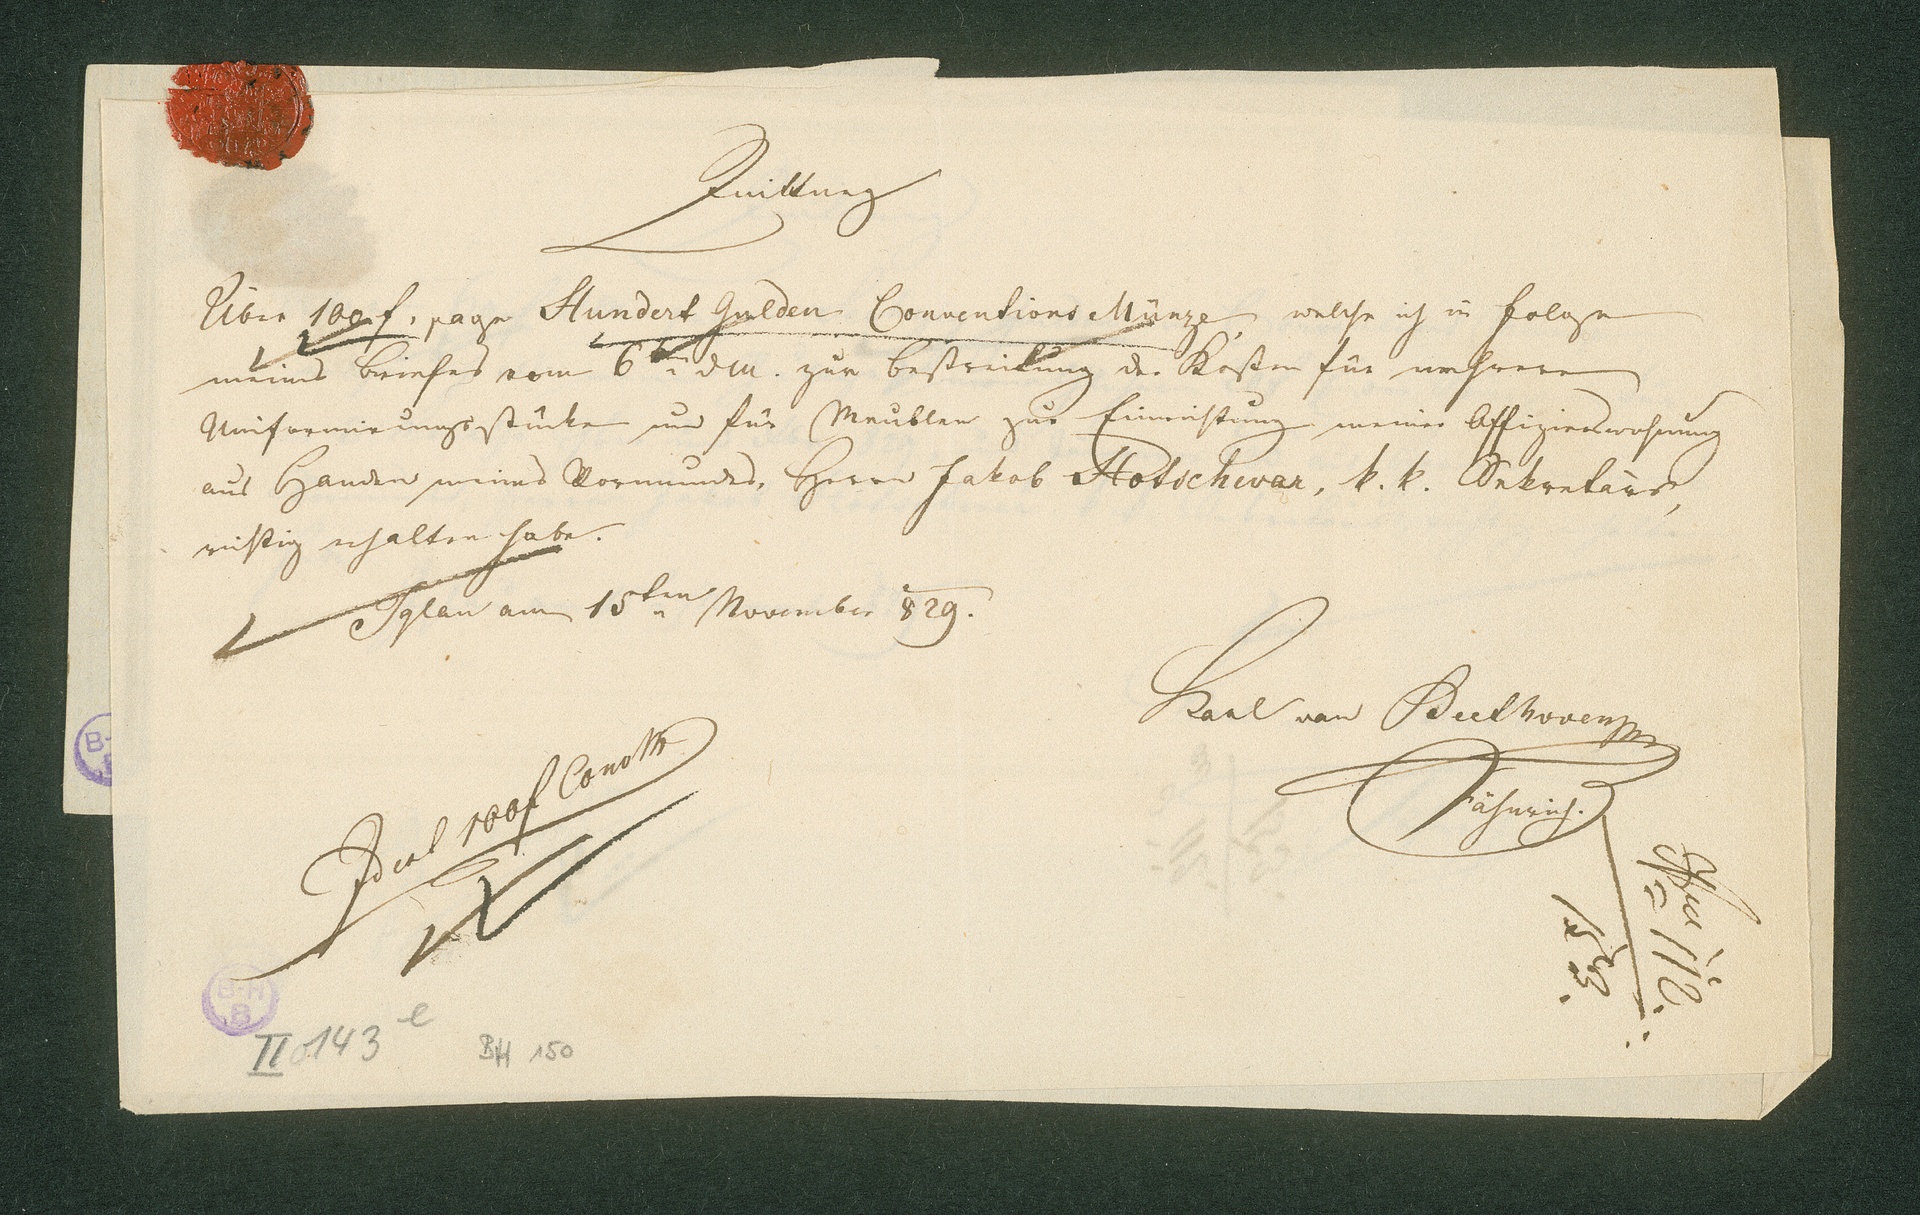 Quittung
Über 100 f, sage Hundert Gulden Conventions Münze, welche ich in Folge
meines Briefes vom 6t d M. zur Bestreitung der Kosten für mehrere
Uniformirungsstücke und für Meublen zur Einrichtung meiner Offizierswohnung
aus Handen meines Vormundes, Herrn Jakob Hotschevar, k. k. Sekretärs,
richtig erhalten habe.
Iglau am 15ten November 829.
Karl van Beethoven
Fähnrich.
100f ConvM
B-H
B
II 143 e
BH 150
B-